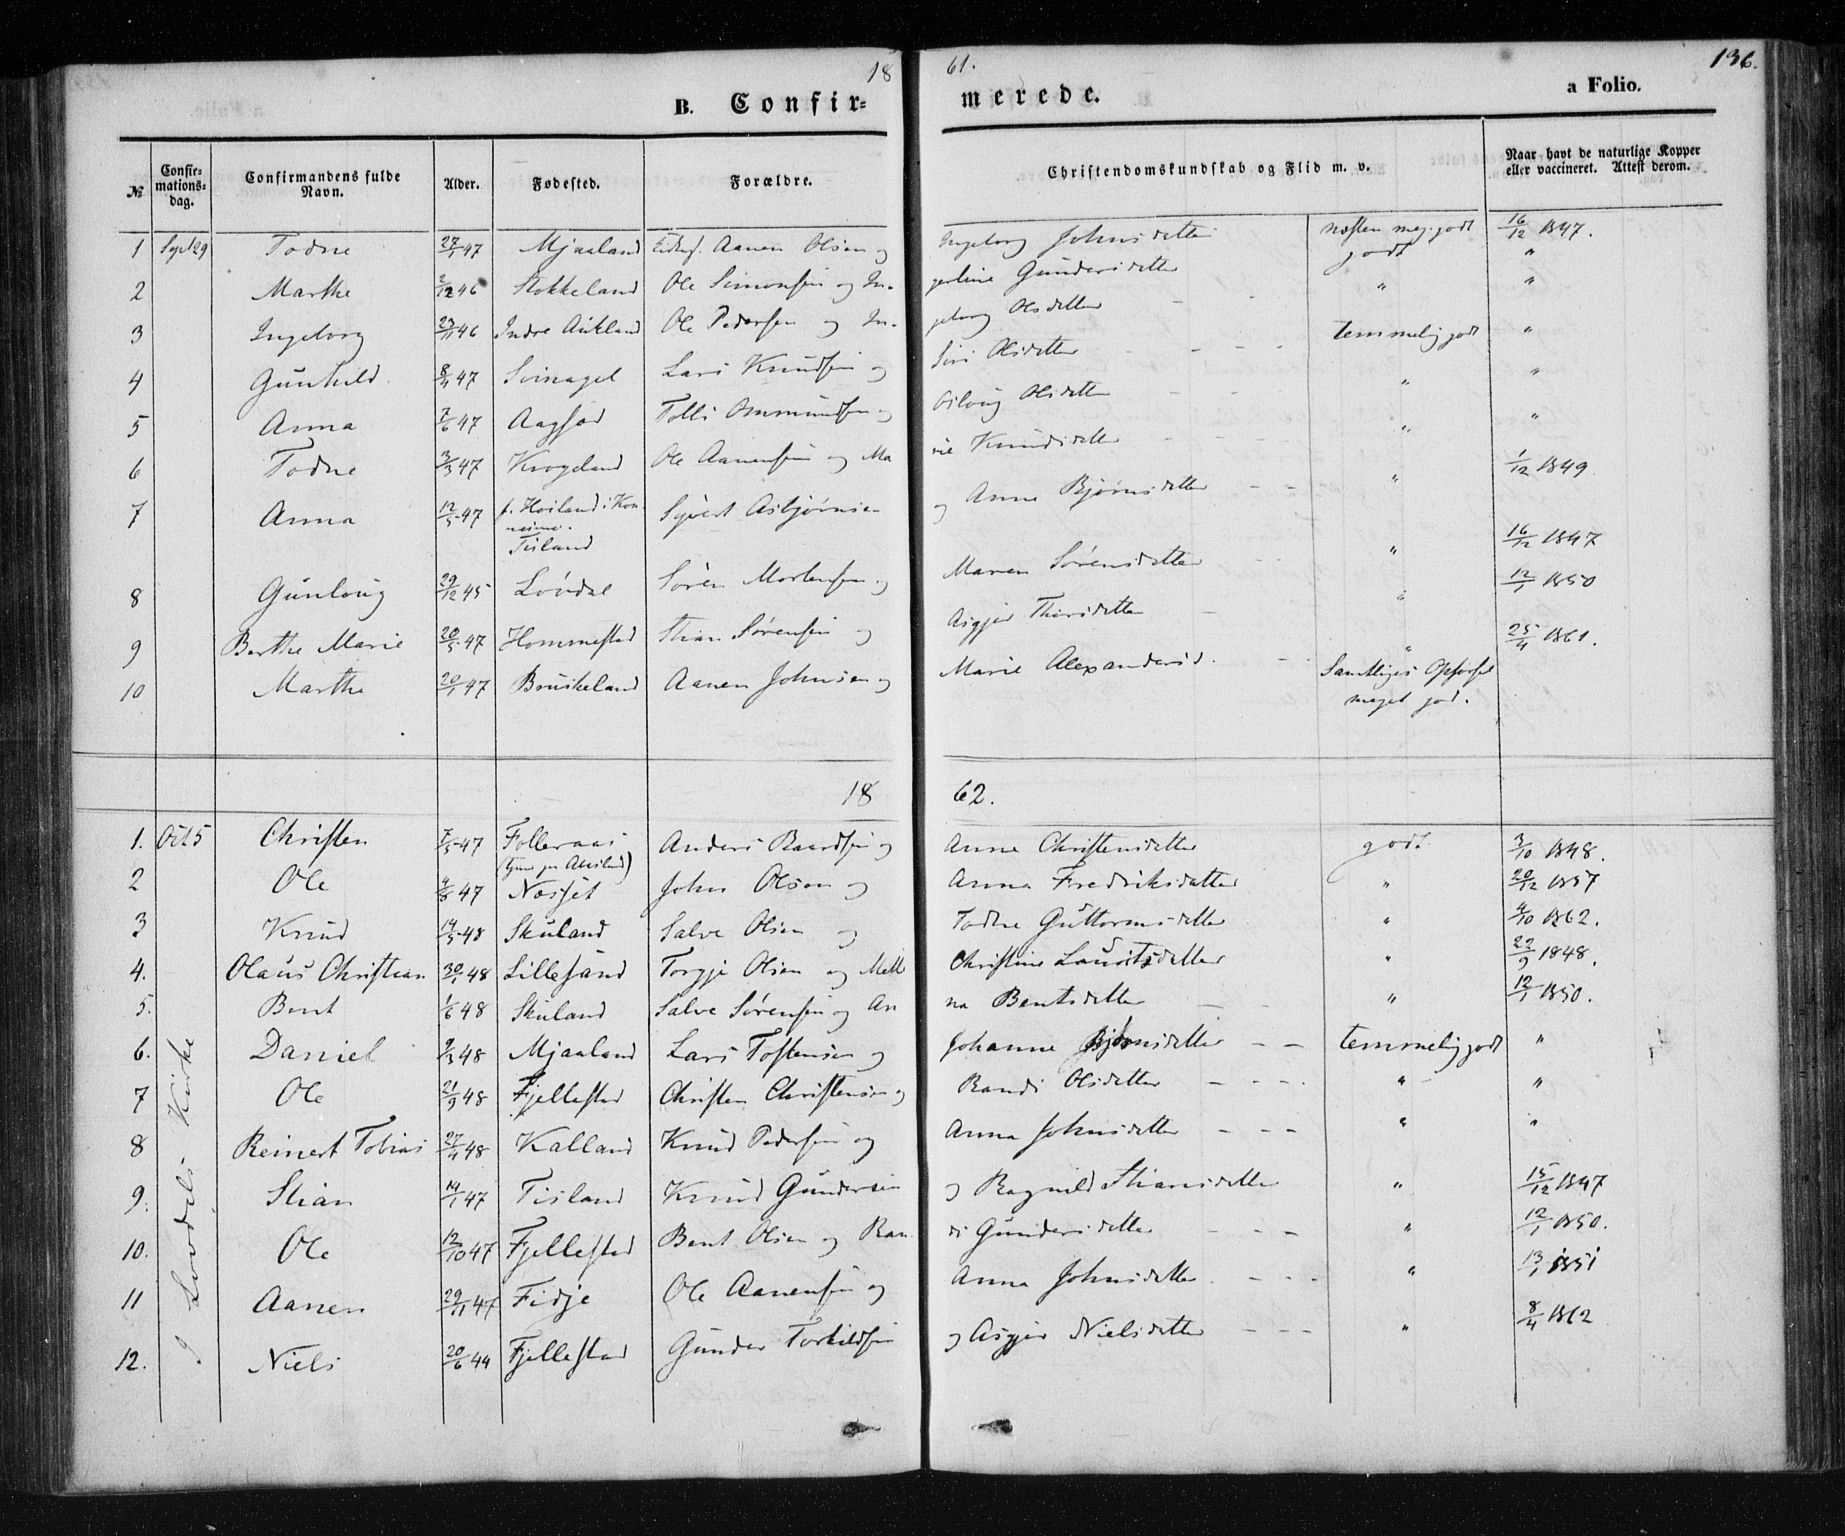 18 61. 136.
B. Confir= merede. a Folio.
№ Confir-mations-dag. Confirmandens fulde Navn. Alder. Fødested. Forældre. Christendomskundskab og Flid m. v. Naar havt de naturlige Kopper eller vaccineret. Attest derom.
1 Sept 29 Todne 27/1 47 Mjaaland Aanen Olsen og Ingeborg Johnsdatter næsten meg. godt 16/12 1847.
2 Marthe 46 Stokkeland Ole Simonsen og In- gerline Gundersdatter godt "
3 Ingeborg 46 Indre Aukland Ole Pedersen og In- geborg Olsdatter " "
4 Gunhild 47 Svinagel Lars Knudsen og Siri Olsdatter - - - temmelig godt "
5 Anna 7/6 47 Aagsod Ommundsen og Olsdatter - - " "
6 Todne 3/3 47 Krogeland Ole Aanensen og Ma rie Knudsdatter - - - " "
7 Anna 12/5 47 f. Høiland i Kon- Tisland Syvert Asbjørnsen og Anne Bjørnsdatter - - " 1/12 1849.
8 Gunloug 29/12 45 Løvdal Søren Mortensen og Maren Sørensdatter " 16/12 1847
9 Berthe Marie 20/5 47 Hommestad Stian Sørensen og Asgjer - " 12/1 1850
10 Marthe 20/1 47 Bruskeland Aanen Johnsen og Marie Alexandersd. - - " 25/4 1861.
Samtliges Opførsel
meget god.
18 62.
1. Oct 5 Christen 7/5 47 Folleraas Anders Baardsen og Anne Christensdatter godt 3/10 1848.
2 Ole 4/6 47 Nosset John Olsen og Anna Fredriksdatter " 20/12 1857
3 Knud 14/5 48 Skuland Salve Olsen og Todne Guttormsdatter " 4/10 1862.
4. Olaus Christian 30/1 48 Lillesand Torgje Olsen og Mette Christine Lauritsdatter " 22/9 1848.
5. Bent 1/6 48 Skuland Salve Sørensen og An na Bentsdatter - - " 12/1 1850.
6. Daniel 9/3 48 Mjaaland Lars Tostensen og Johanne Bjørnsdatter - - temmelig godt "
7 Ole 21/9 48 Fjellestad Christen Christensen og Randi Olsdatter - - - - " "
8 Reinert Tobias 27/4 48 Kalland Knud Pedersen og Anna Johnsdatter - - - " "
9. Stian 14/1 47 Tisland Knud Gundersen og Ragnild Stiansdatter " 15/12 1847
10. Ole 12/10 47 Fjellestad Bent Olsen og Ran di Gundersdatter - - - " 12/1 1850.
11 Aanen 29/11 47 Fidje Ole Aanensen og Anna Johnsdatter - - - " 13/1 1851
12. Niels 20/6 44 Fjellestad Gunder Torkildsen og Asgjer Nielsdatter - - - " 8/4 1862
I Løvdals Kirke